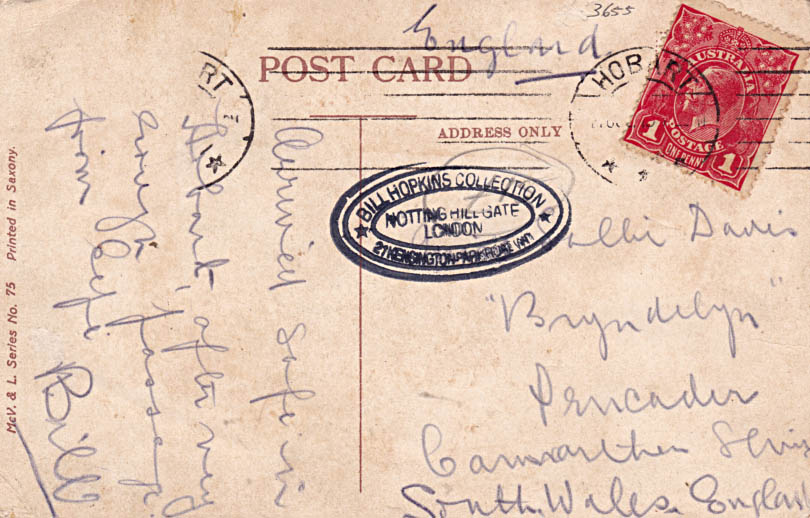 3655
England
POST CARD
ADDRESS ONLY
HOBART
RT
AUSTRALIA
1 POSTAGE 1
ONE PENNY
BILL HOPKINS COLLECTION
NOTTING HILL GATE
LONDON
KENSINGTON PARK
Davis
"Bryndelyn"
Pencader
Carmarthen
South Wales. England
Arrived safe in
Hobart, after very
passage
from Cape
Bill
McV. & L. Series No. 75 Printed in Saxony.